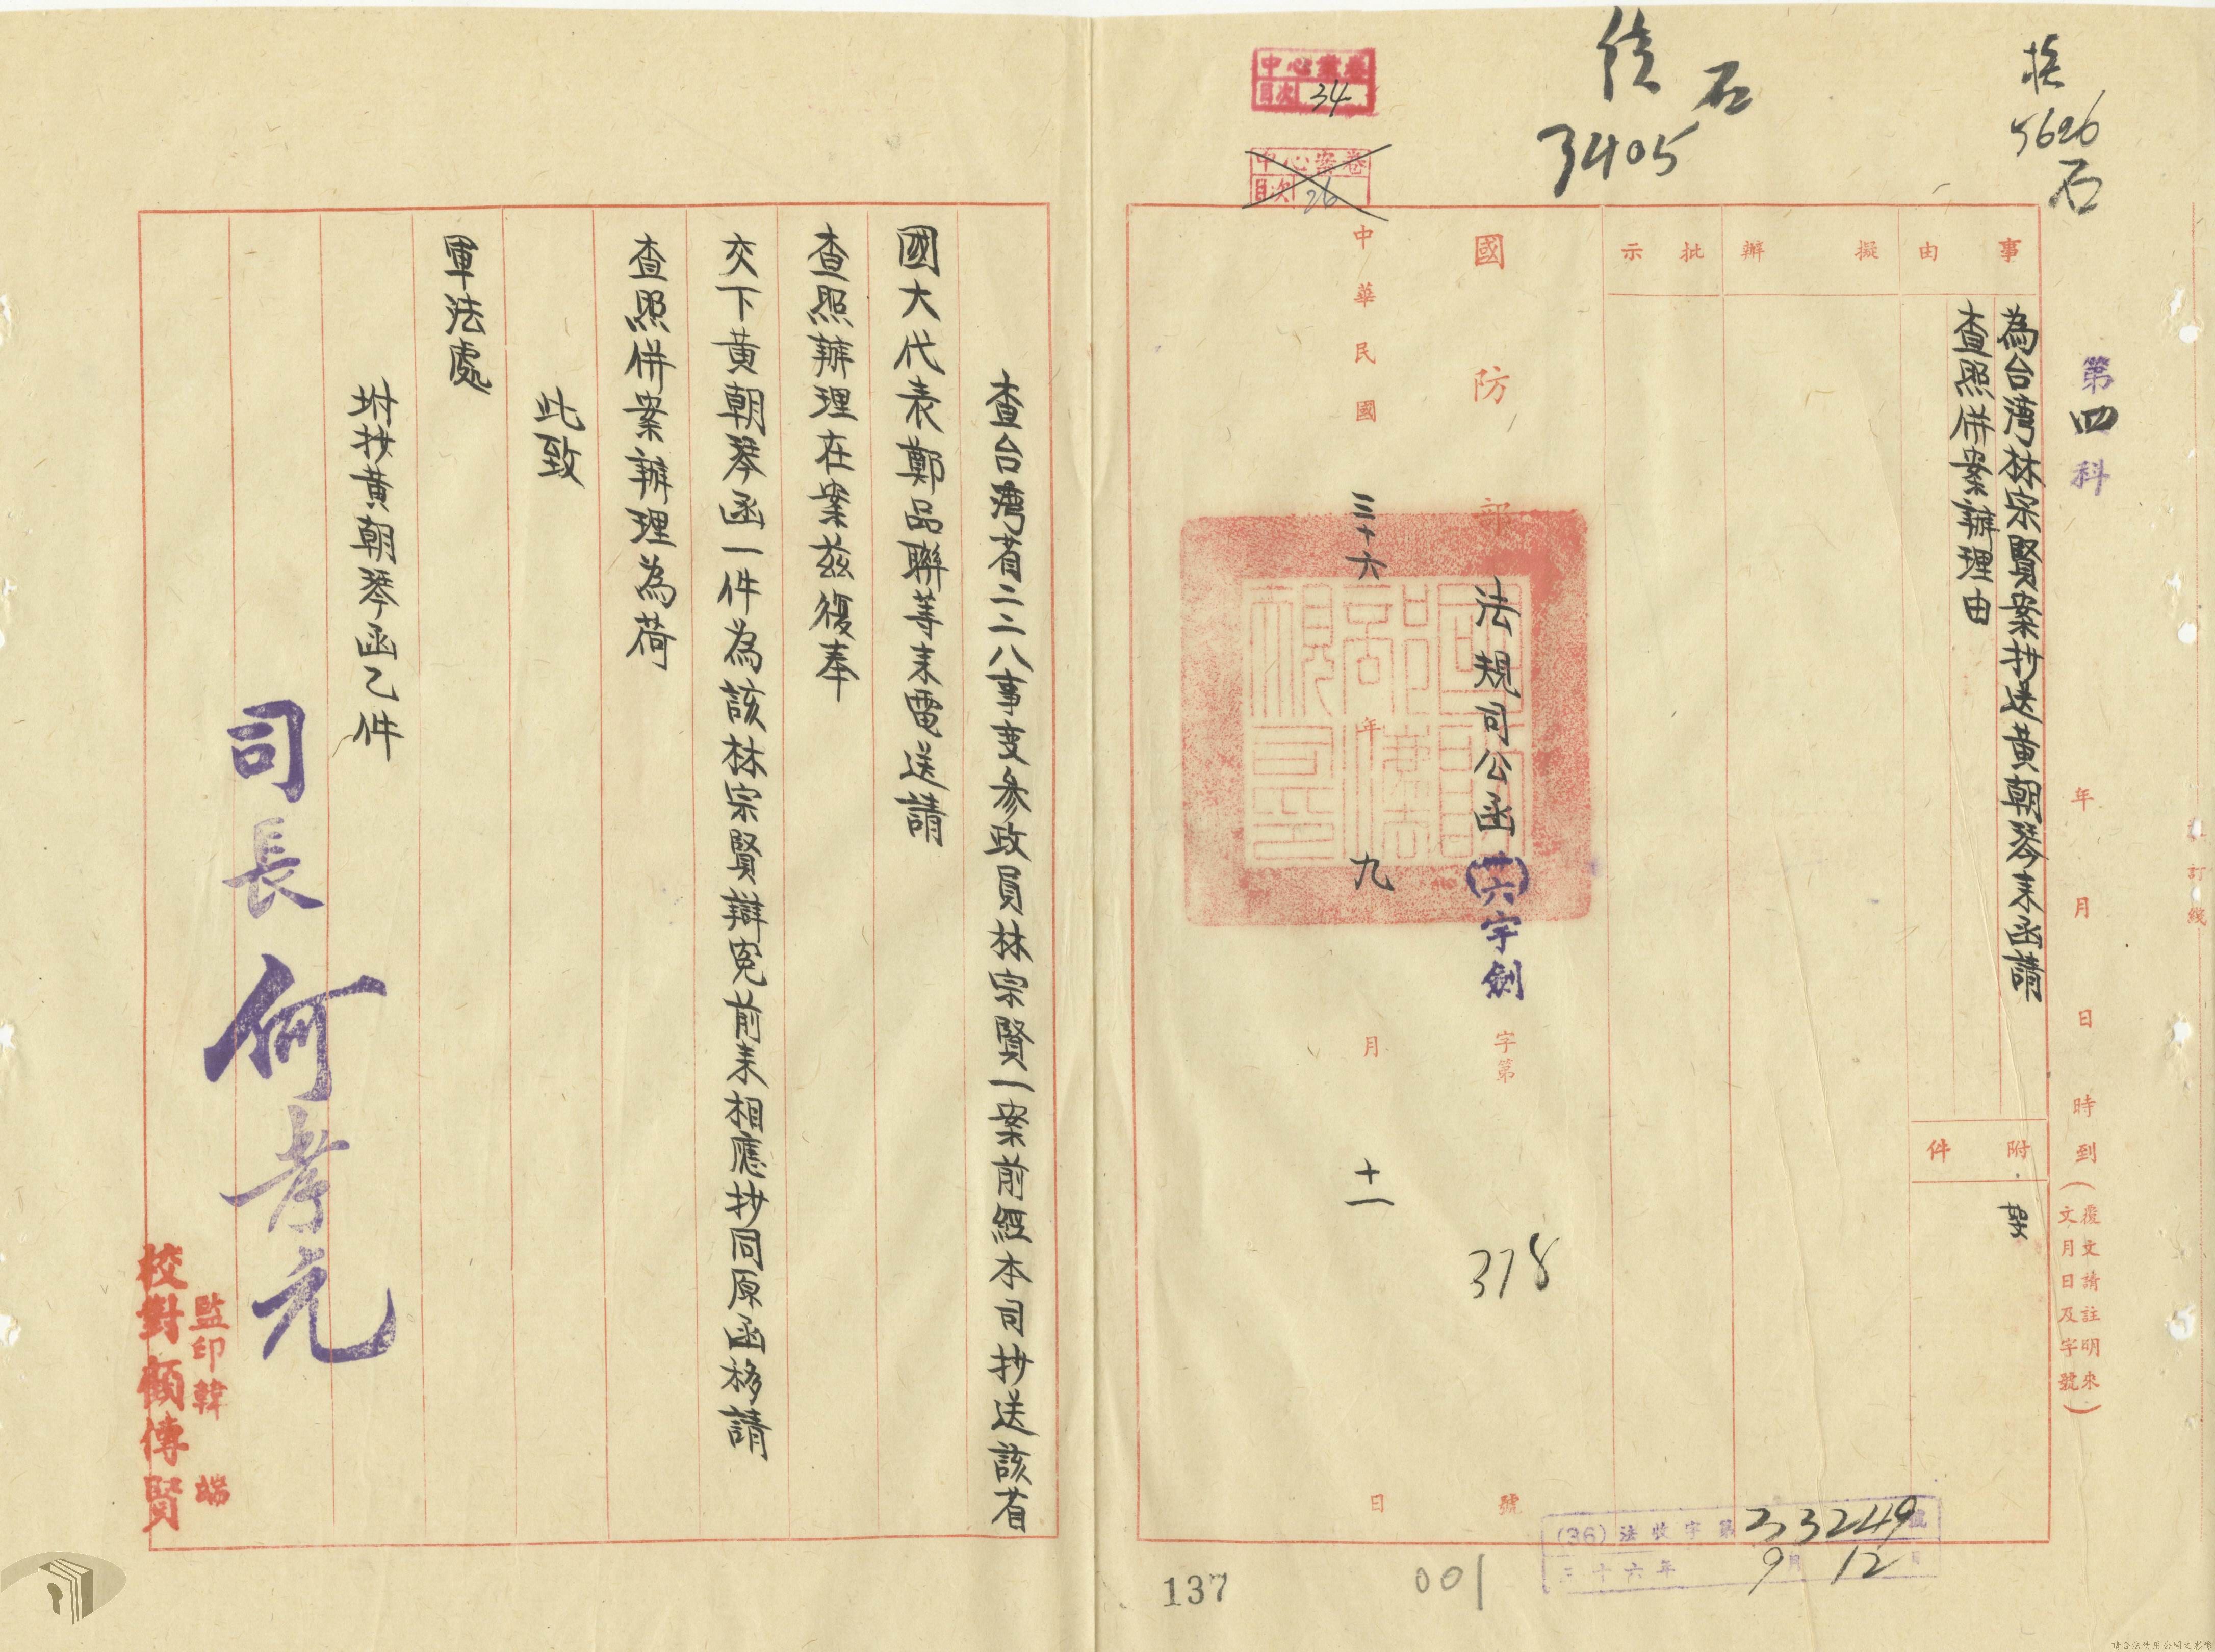 核
5626
石
續
石
3405
中心案卷
目次 34
中心案卷
目次 26
第四科
年 月 日 時到(覆文請註明來文月日及字號)
訂線
事由
為台灣林宗賢案抄送黃朝琴来函請
查照併案辦理由
附件
擬辦
批示
國防部 法規司公函 (卅六)宇創 字第 378 號
中華民國 三十六 年 九 月 十一 日
(36)法收字第 33249 號
三十六年 9月 12日
查台灣省二二八事变参政員林宗賢一案前經本司抄送該省
國大代表鄭品聯等来電送請
查照辦理在案茲復奉
交下黃朝琴函一件為該林宗賢辯冤前来相應抄同原函移請
查照併案辦理為荷
此致
軍法處
坿抄黃朝琴函乙件
司長 何孝元
監印韓 端
校對顧傳賢
137
001
請合法使用公開之影像